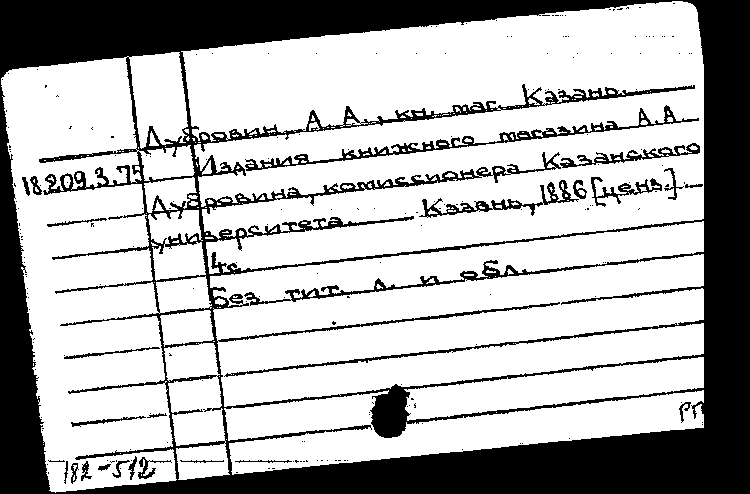 Дубровин, А. А., кн. маг. Казань.
18.209.3.75. Издания книжного магазина А.А.
Дубровина, комиссионера Казанского
университета. Казань, 1886 [ценз.]
4с.
Без тит. л. и обл.
РП
182-512